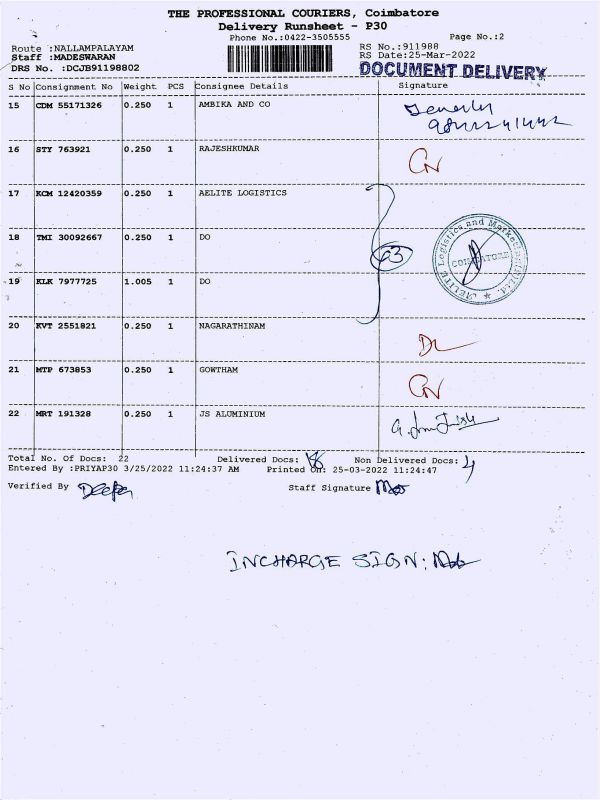 THE PROFESSIONAL COURIERS, Coimbatore
Delivery Runsheet - P30
Phone No.:0422-3505555 Page No.:2
Route :NALLAMPALAYAM RS No.:911988
Staff :MADESWARAN RS Date:25-Mar-2022
DRS No. :DCJB91198802 DOCUMENT DELIVERY
S No Consignment No Weight PCS Consignee Details Signature
15 CDM 55171326 0.250 1 AMBIKA AND CO
16 STY 763921 0.250 1 RAJESHKUMAR CN
17 KCM 12420359 0.250 1 AELITE LOGISTICS
18 TMI 30092667 0.250 1 DO 63 COIMBATORE
19 KLK 7977725 1.005 1 DO
20 KVT 2551821 0.250 1 NAGARATHINAM DL
21 MTP 673853 0.250 1 GOWTHAM CN
22 MRT 191328 0.250 1 JS ALUMINIUM
Total No. Of Docs: 22 Delivered Docs: 18 Non Delivered Docs: 4
Entered By :PRIYAP30 3/25/2022 11:24:37 AM Printed On: 25-03-2022 11:24:47
Verified By Deepa Staff Signature
INCHARGE SIGN: